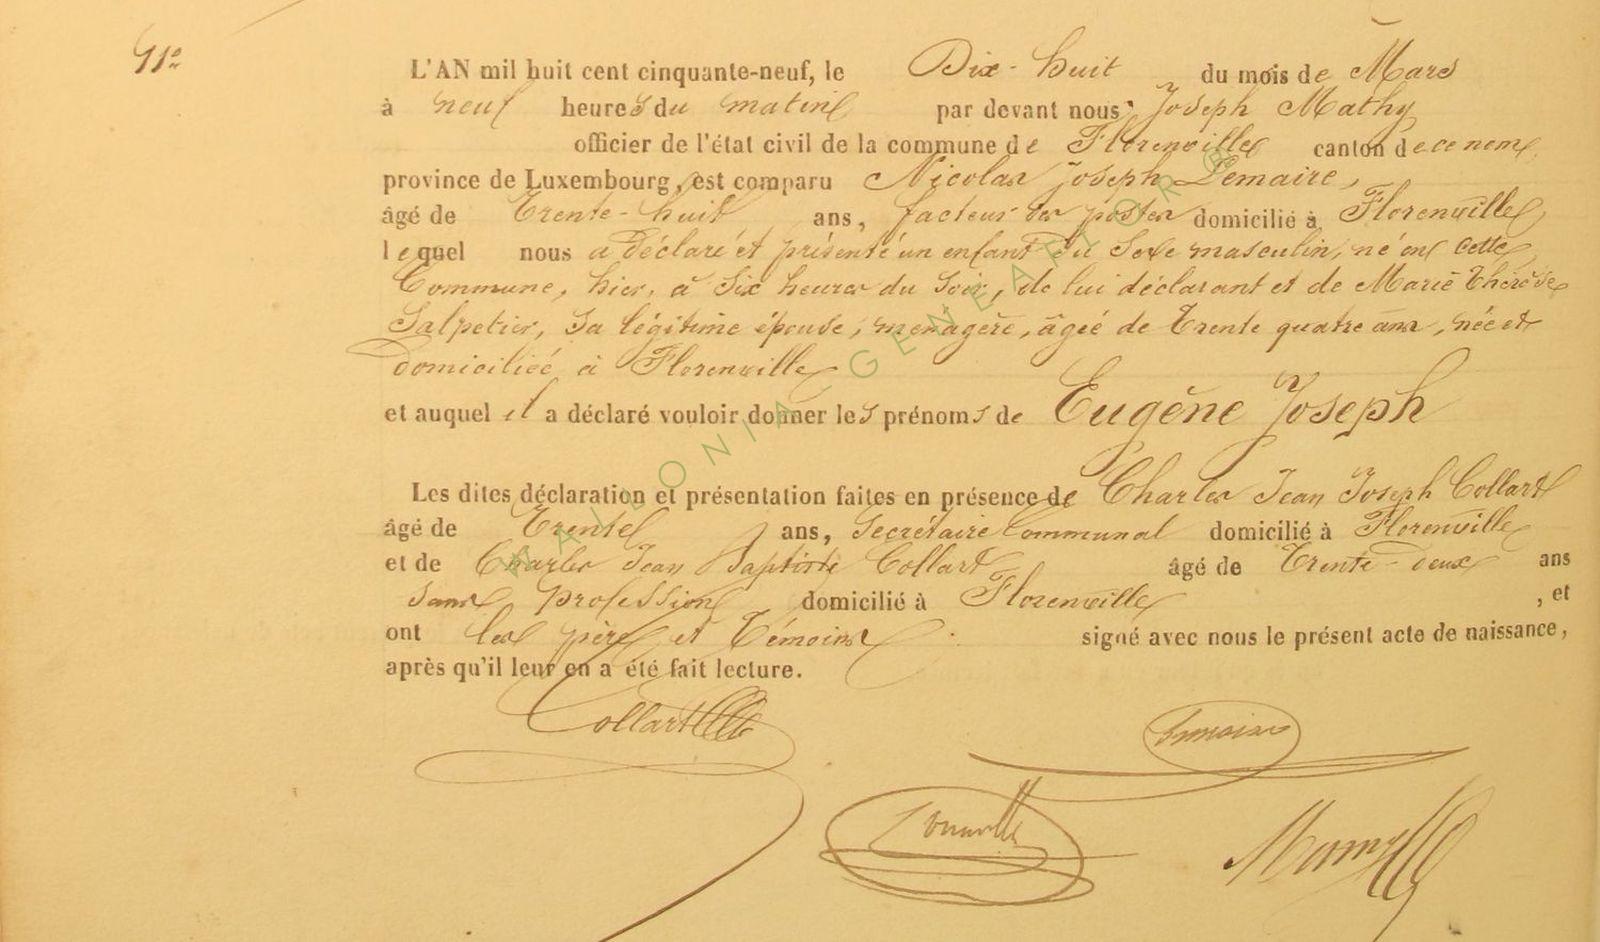 L'AN mil huit cent cinquante-neuf, le Dix-huit du mois de Mars
à neuf heures du matin par devant nous Joseph Mathy
officier de l'état civil de la commune de Florenville canton de ce nom,
province de Luxembourg, est comparu Nicolas Joseph Lemaire,
âgé de Trente-huit ans, facteur des postes domicilié à Florenville,
lequel nous a déclaré et présenté un enfant du sexe masculin, né en cette
Commune, hier, à six heures du soir, de lui déclarant et de Marie Thérèse
Salpetier, sa légitime épouse, ménagère, âgée de Trente quatre ans, née et
domiciliée à Florenville
et auquel il a déclaré vouloir donner les prénoms de Eugène Joseph
Les dites déclaration et présentation faites en présence de Charles Jean Joseph Collart
âgé de Trente ans, Secrétaire Communal domicilié à Florenville
et de Charles Jean Baptiste Collart âgé de Trente-deux ans
sans profession domicilié à Florenville, et
ont les père et Témoins signé avec nous le présent acte de naissance,
après qu'il leur en a été fait lecture.
Collart